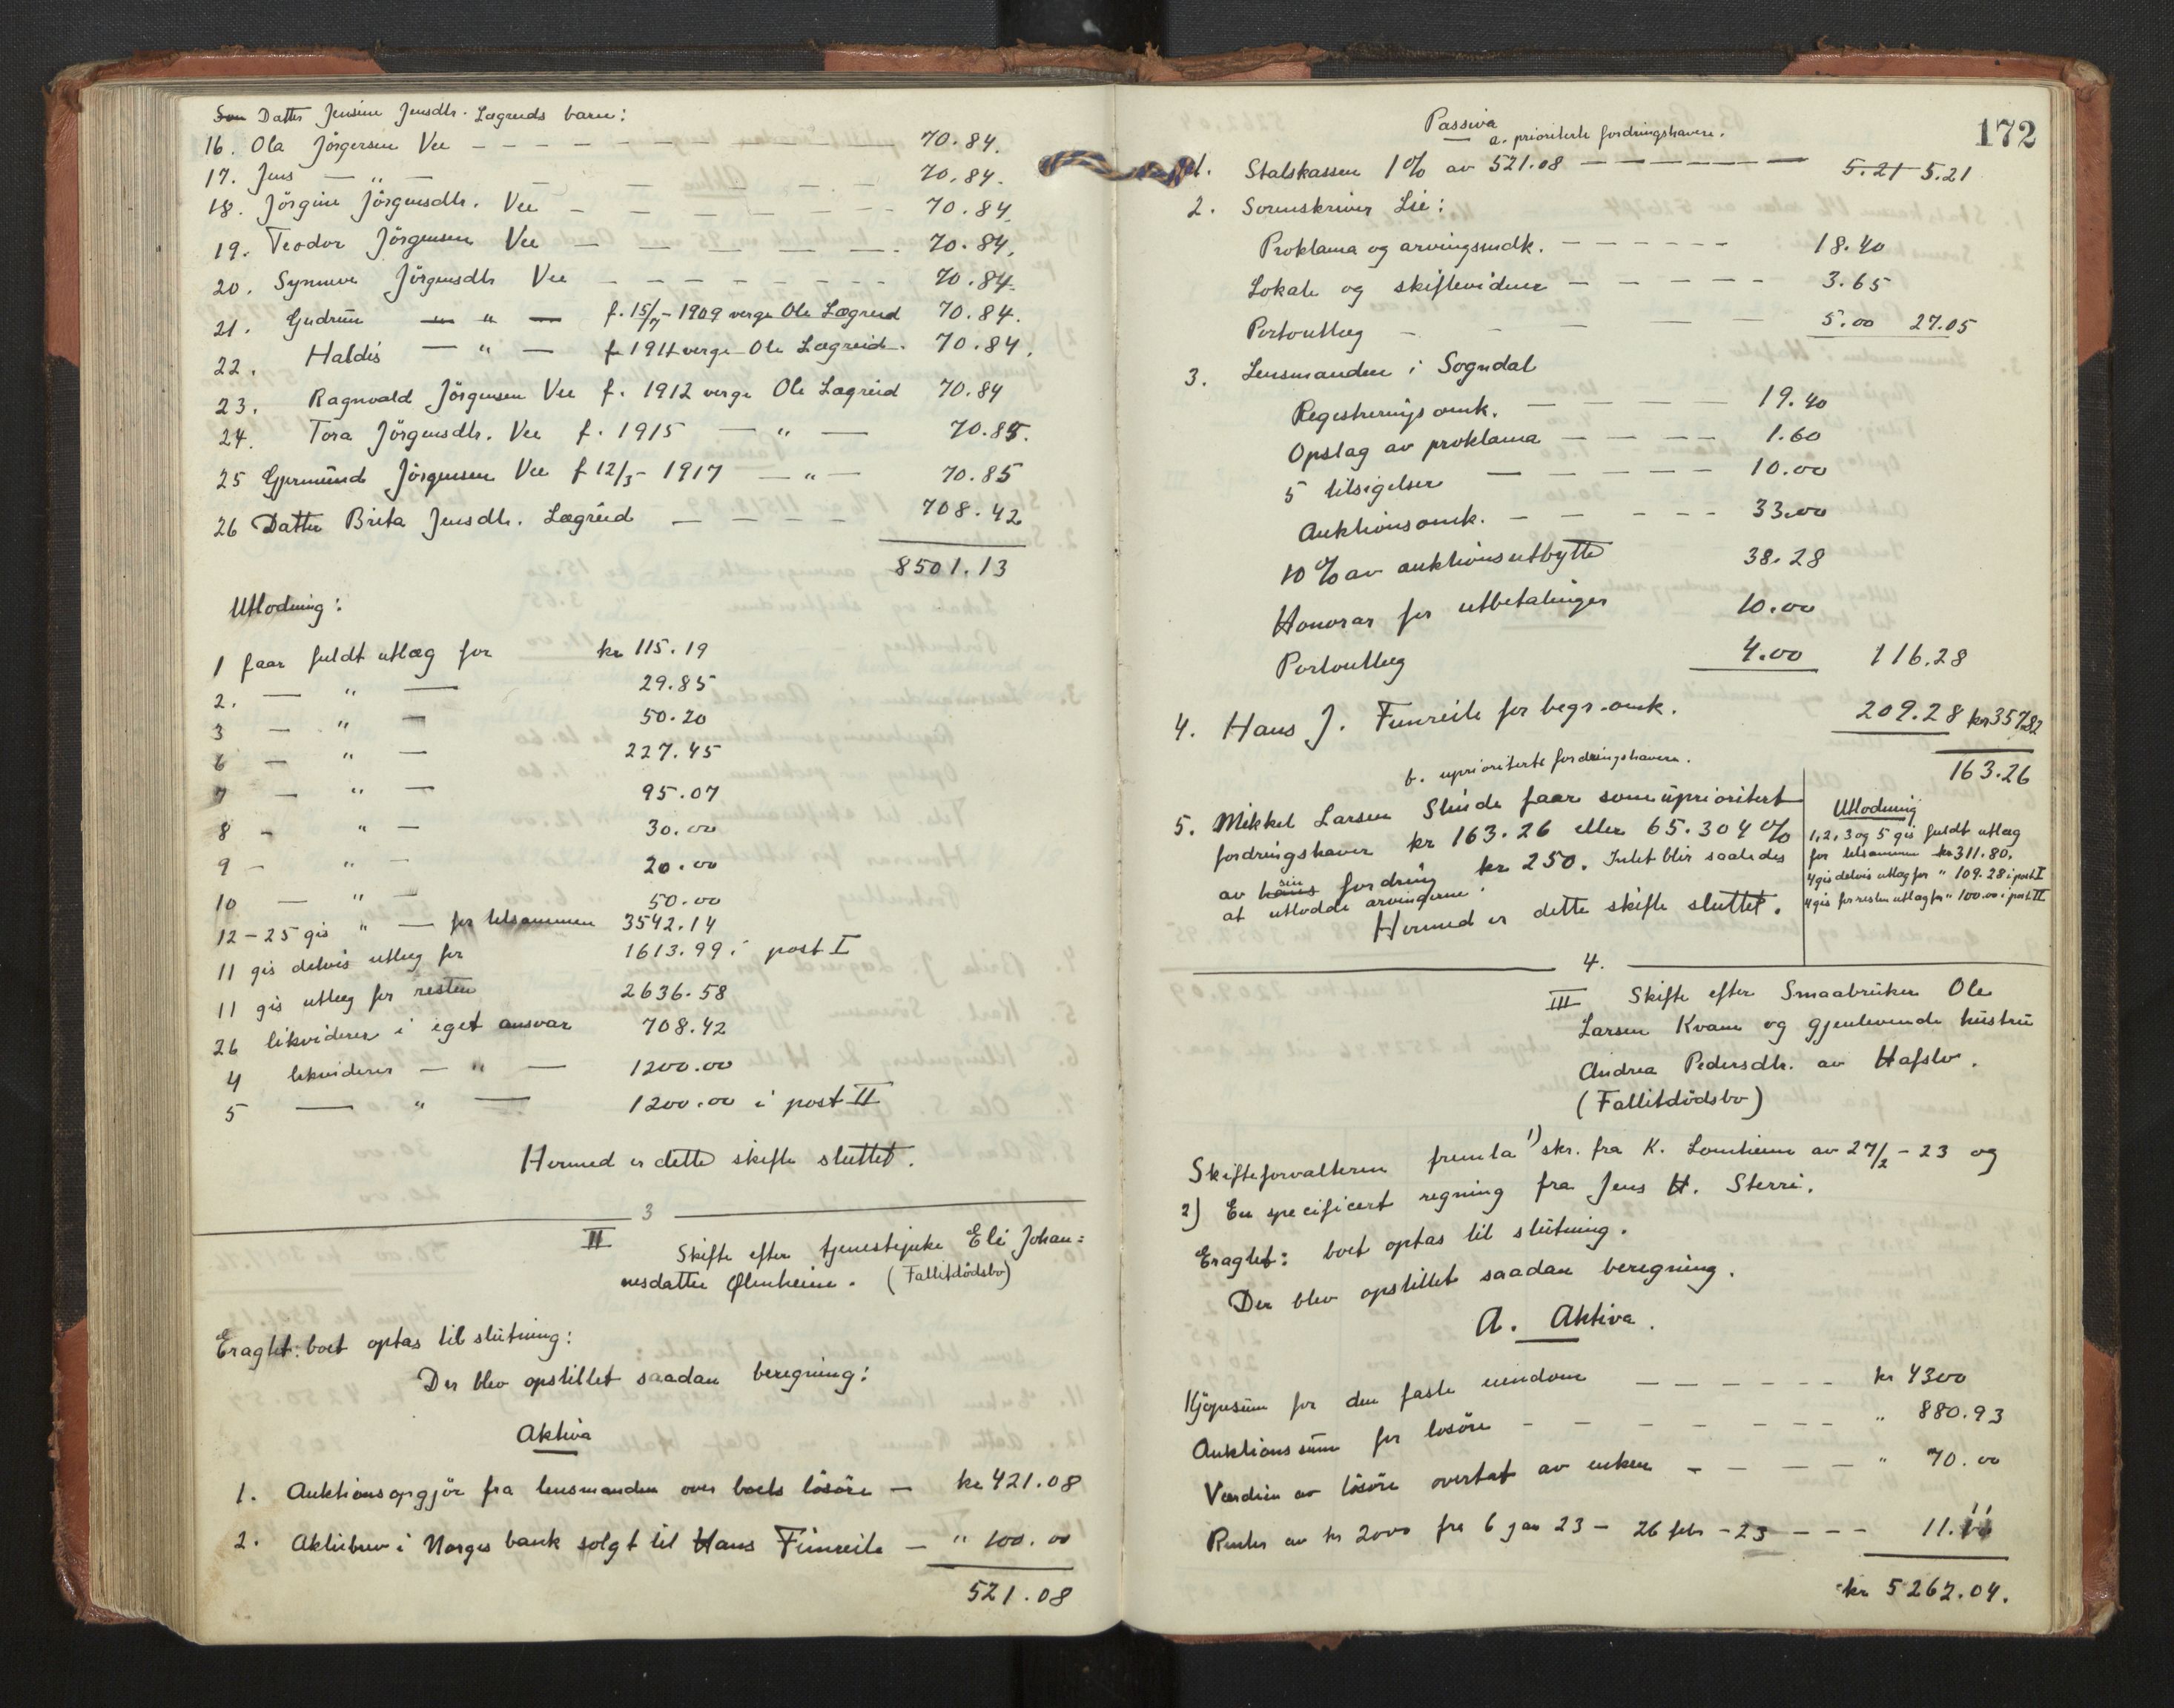 Datter Jensine Jensdtr. Lægreids barn:
16. Ola Jörgensen Vee — 70.84.
17. Jens — " — 70.84.
18. Jörgine Jörgensdtr. Vee — 70.84.
19. Teodor Jörgensen Vee — 70.84.
20. Synneve Jörgensdtr Vee — 70.84.
21. Gudrun — " — f. 15/7-1909 verge Ole Lægreid 70.84.
22. Haldis — " — f 1911 verge Ole Lægreid. 70.84.
23. Ragnvald Jörgensen Vee f. 1912 verge Ole Lægreid 70.84
24. Tora Jörgensdtr. Vee f. 1915 — " — 70.85.
25 Gjermund Jörgensen Vee f 12/3-1917 — " — 70.85
26 Datter Brita Jensdtr. Lægreid — 708.42
8501.13
Utlodning:
1 faar fuldt utlæg for kr 115.19
2. — " — 29.85
3 — " — 50.20
6 — " — 227.45
7 — " — 95.07
8 - " — 30.00
9 — " — 20.00
10 — " — 50.00
12-25 gis " — for tilsammen 3542.14
11 gis delvis utlæg for 1613.99 i post I
11 gis utlæg for resten 2636.58
26 likviderer i eget ansvar 708.42
4 likviderer — " — 1200.00
5 — " — 1200.00 i post II
Hermed er dette skifte sluttet.
3
II Skifte efter tjenestepike Eli Johan=
nesdatter Ølmheim. (Fallitdödsbo)
Eragtet: boet optas til slutning:
Der blev opstillet saadan beregning:
Aktiva
1. Auktionsopgjör fra lensmanden over boets lösöre — kr 421.08
2. Aktiebrev i Norges bank solgt til Hans Fimreite — " 100.00
521.08
172
Passiva
a. prioriterte fordringshavere.
1. Statskassen 1% av 521.08 — 5.21 5.21
2. Sorenskriver Lie:
Proklama og arvingsindk. — 18.40
Lokale og skiftevidner — 3.65
Portoutlæg — 5.00 27.05
3. Lensmanden i Sogndal
Registrerings omk. — 19.40
Opslag av proklama — 1.60
5 tilsigelser — 10.00
Auktionsomk. — 33.00
10% av auktionsutbytte 38.28
Honorar for utbetalinger 10.00
Portoutlæg 4.00 116.28
4. Hans J. Fimreite for begr.omk. 209.28 kr 357.82
163.26
b. uprioriterte fordringshavere.
5. Mikkel Larsen Slinde faar som uprioritert
fordringshaver kr 163.26 eller 65.304%
av hans sin fordring kr 250. Intet blir saaledes
at utlodde arvingerne.
Hermed er dette skifte sluttet.
Utlodning
1, 2, 3 og 5 gis fuldt utlæg
for tilsammen kr 311.80.
4 gis delvis utlæg for " 109.28 i post I
4 gis for resten utlæg for " 100.00 i post II
4.
III Skifte efter Smaabruker Ole
Larsen Kvam og gjenlevende hustru
Andrea Pedersdtr. av Hafslo.
(Fallitdödsbo)
Skifteforvalteren fremla 1) skr. fra K. Lomheim av 27/2-23 og
2) En specificert regning fra Jens H. Sterri.
Eragtet: boet optas til slutning.
Der blev opstillet saadan beregning.
A. Aktiva.
Kjöpesum for den faste eiendom — kr 4300
Auktionssum for lösöre — " 880.93
Værdien av lösöre overtat av enken — " 70.00
Renter av kr 2000 fra 6 jan 23 - 26 febr -23 — 11.11
kr 5262.04.